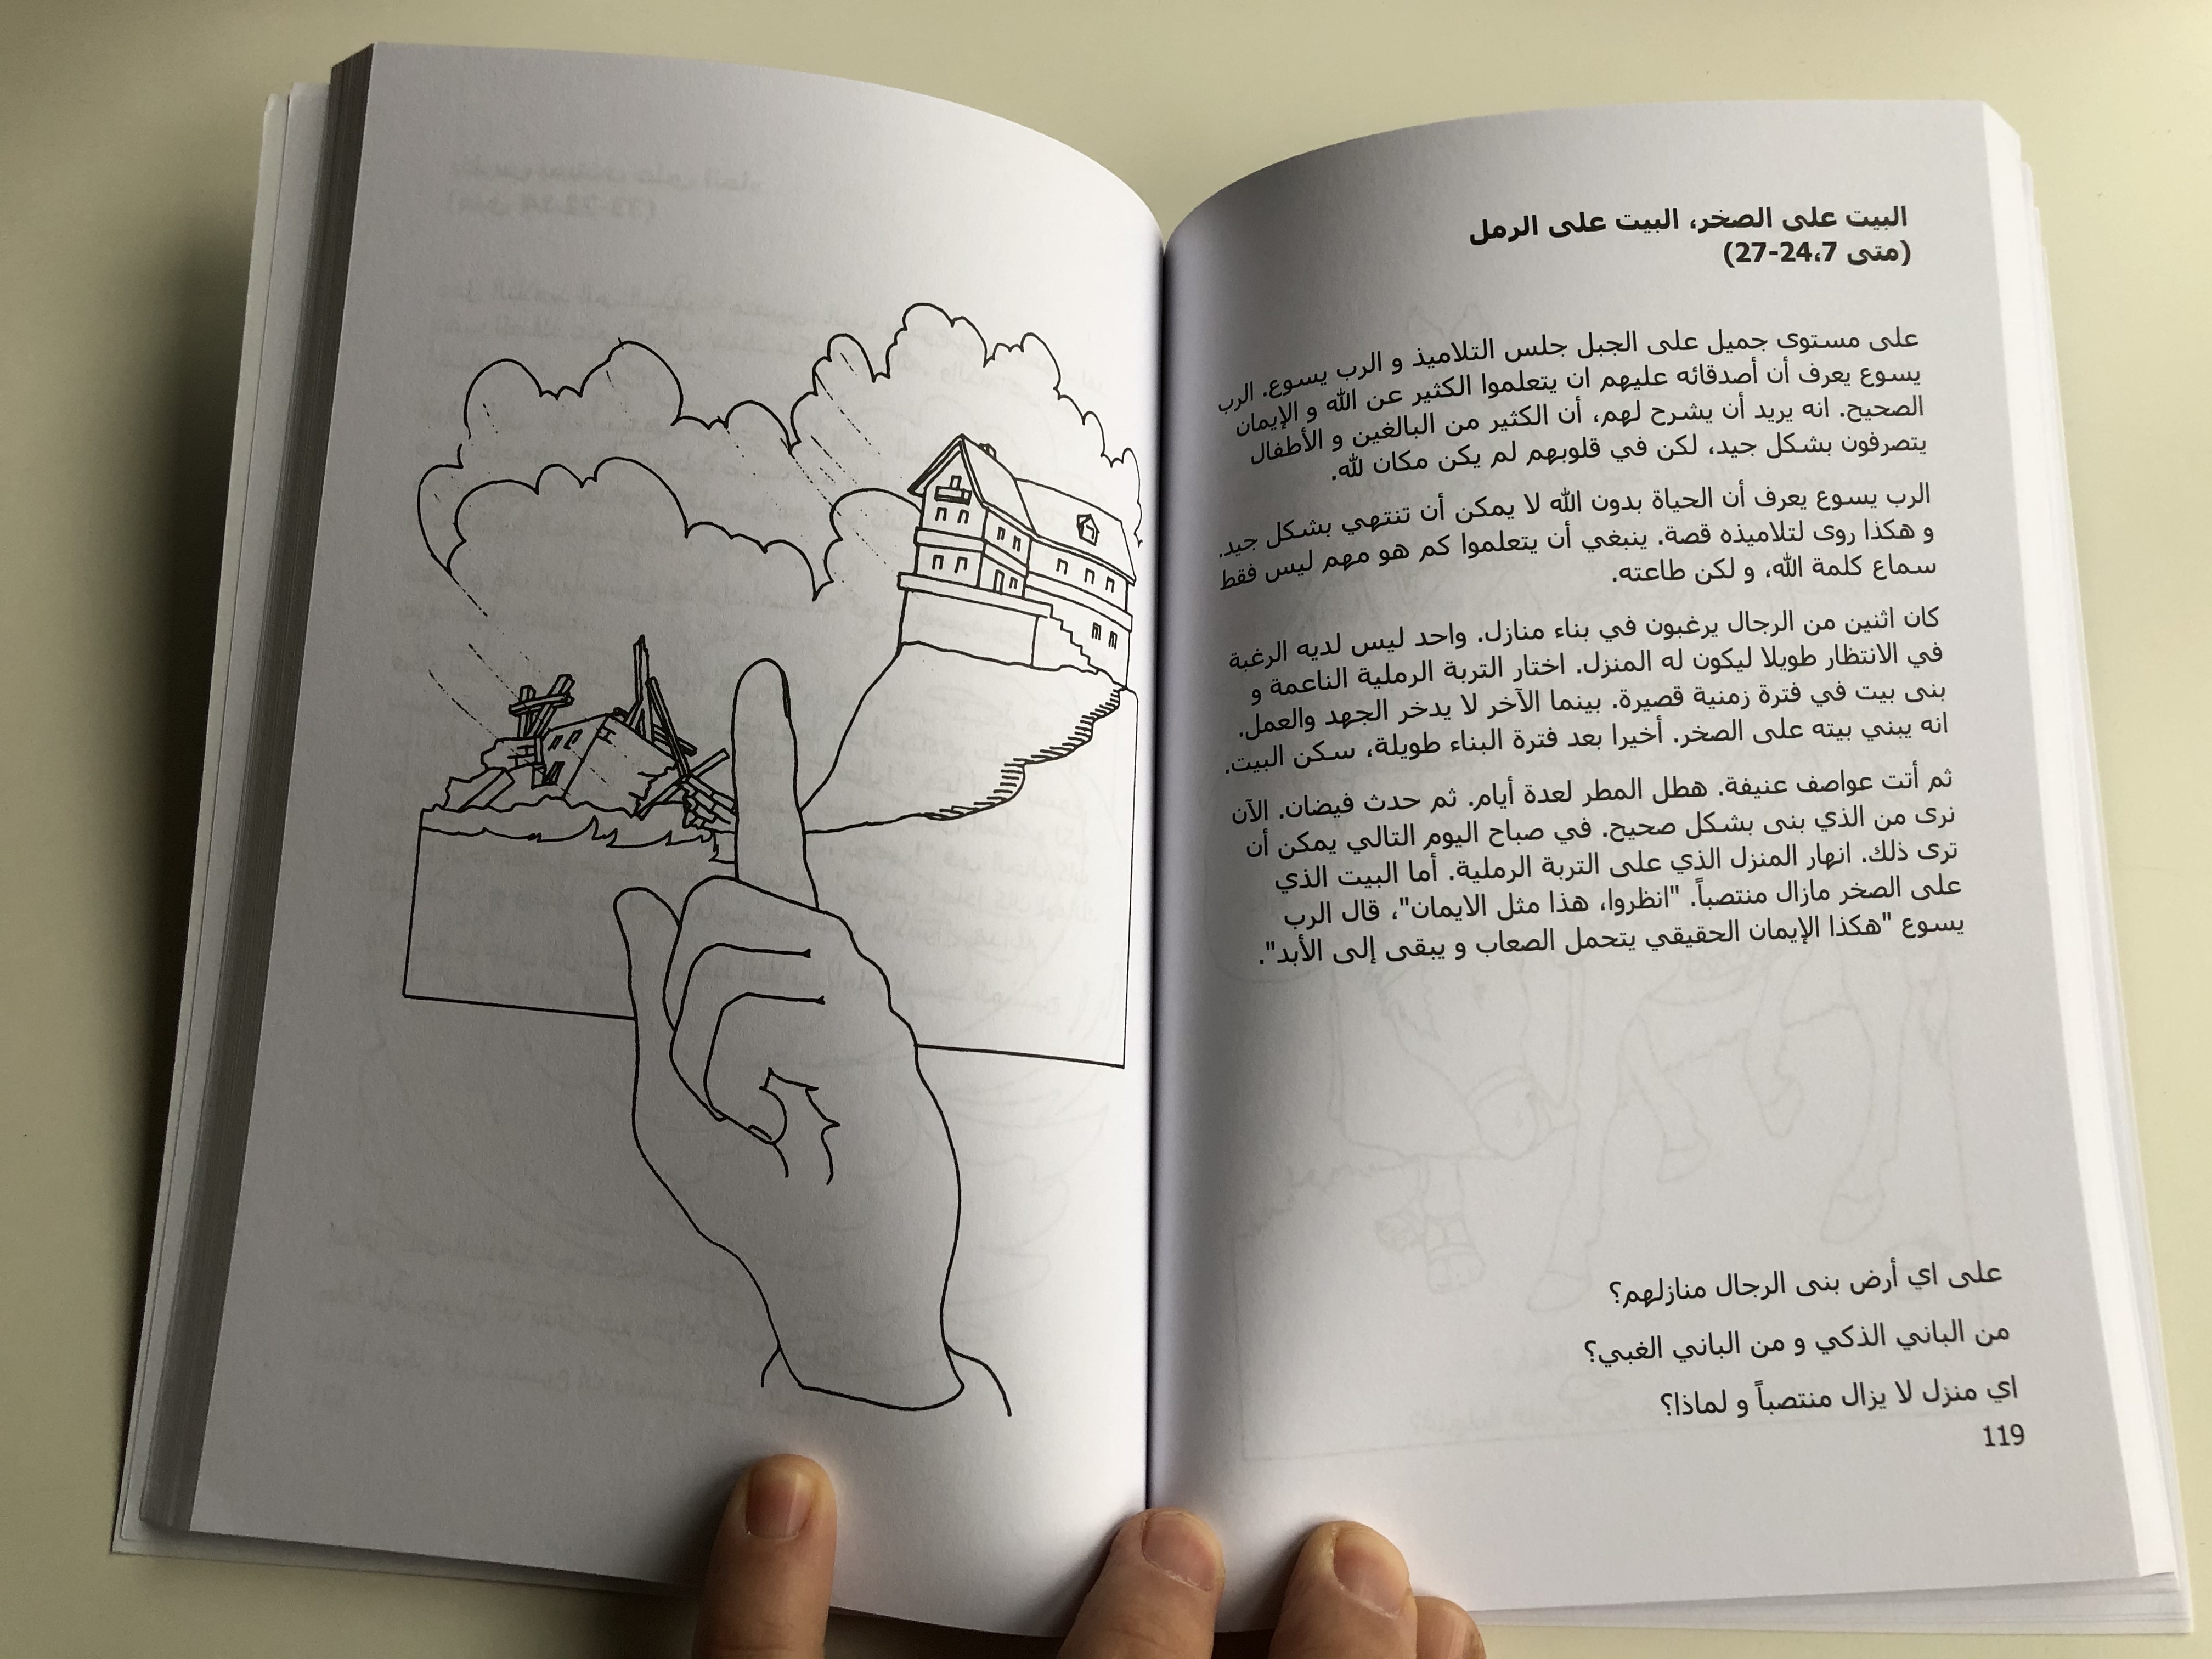 البيت على الصخر، البيت على الرمل
(متى 24،7-27)
على مستوى جميل على الجبل جلس التلاميذ و الرب يسوع. الرب
يسوع يعرف أن أصدقائه عليهم ان يتعلموا الكثير عن الله و الإيمان
الصحيح. انه يريد أن يشرح لهم، أن الكثير من البالغين و الأطفال
يتصرفون بشكل جيد، لكن في قلوبهم لم يكن مكان لله.
الرب يسوع يعرف أن الحياة بدون الله لا يمكن أن تنتهي بشكل جيد.
و هكذا روى لتلاميذه قصة. ينبغي أن يتعلموا كم هو مهم ليس فقط
سماع كلمة الله، و لكن طاعته.
كان اثنين من الرجال يرغبون في بناء منازل. واحد ليس لديه الرغبة
في الانتظار طويلا ليكون له المنزل. اختار التربة الرملية الناعمة و
بنى بيت في فترة زمنية قصيرة. بينما الآخر لا يدخر الجهد والعمل.
انه يبني بيته على الصخر. أخيرا بعد فترة البناء طويلة، سكن البيت.
ثم أتت عواصف عنيفة. هطل المطر لعدة أيام. ثم حدث فيضان. الآن
نرى من الذي بنى بشكل صحيح. في صباح اليوم التالي يمكن أن
ترى ذلك. انهار المنزل الذي على التربة الرملية. أما البيت الذي
على الصخر مازال منتصباً. "انظروا، هذا مثل الايمان"، قال الرب
يسوع "هكذا الإيمان الحقيقي يتحمل الصعاب و يبقى إلى الأبد".
على اي أرض بنى الرجال منازلهم؟
من الباني الذكي و من الباني الغبي؟
اي منزل لا يزال منتصباً و لماذا؟
119